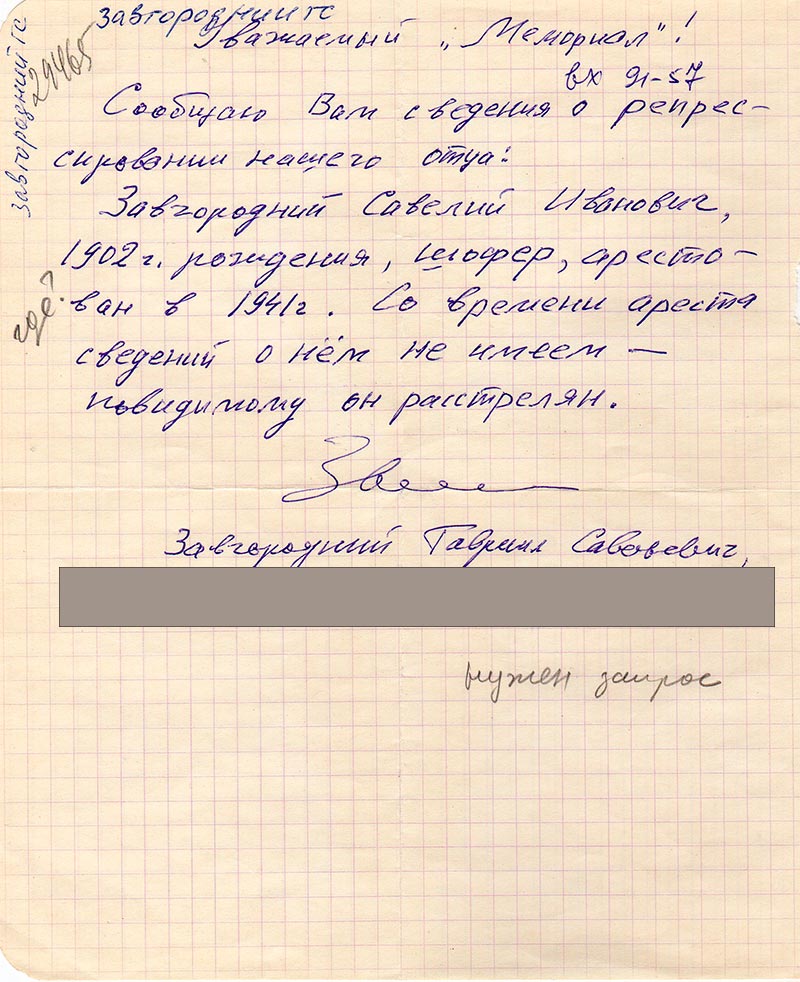 Завгородний ГС
Уважаемый „Мемориал"!
вх 91-57
Сообщаю Вам сведения о репрес-
сировании нашего отца:
Завгородний Савелий Иванович,
1902 г. рождения, шофер, аресто-
ван в 1941 г. Со времени ареста
сведений о нём не имеем —
повидимому он расстрелян.
Завгородний Гавриил Савельевич,
нужен запрос
Завгородний ГС
29465
где?